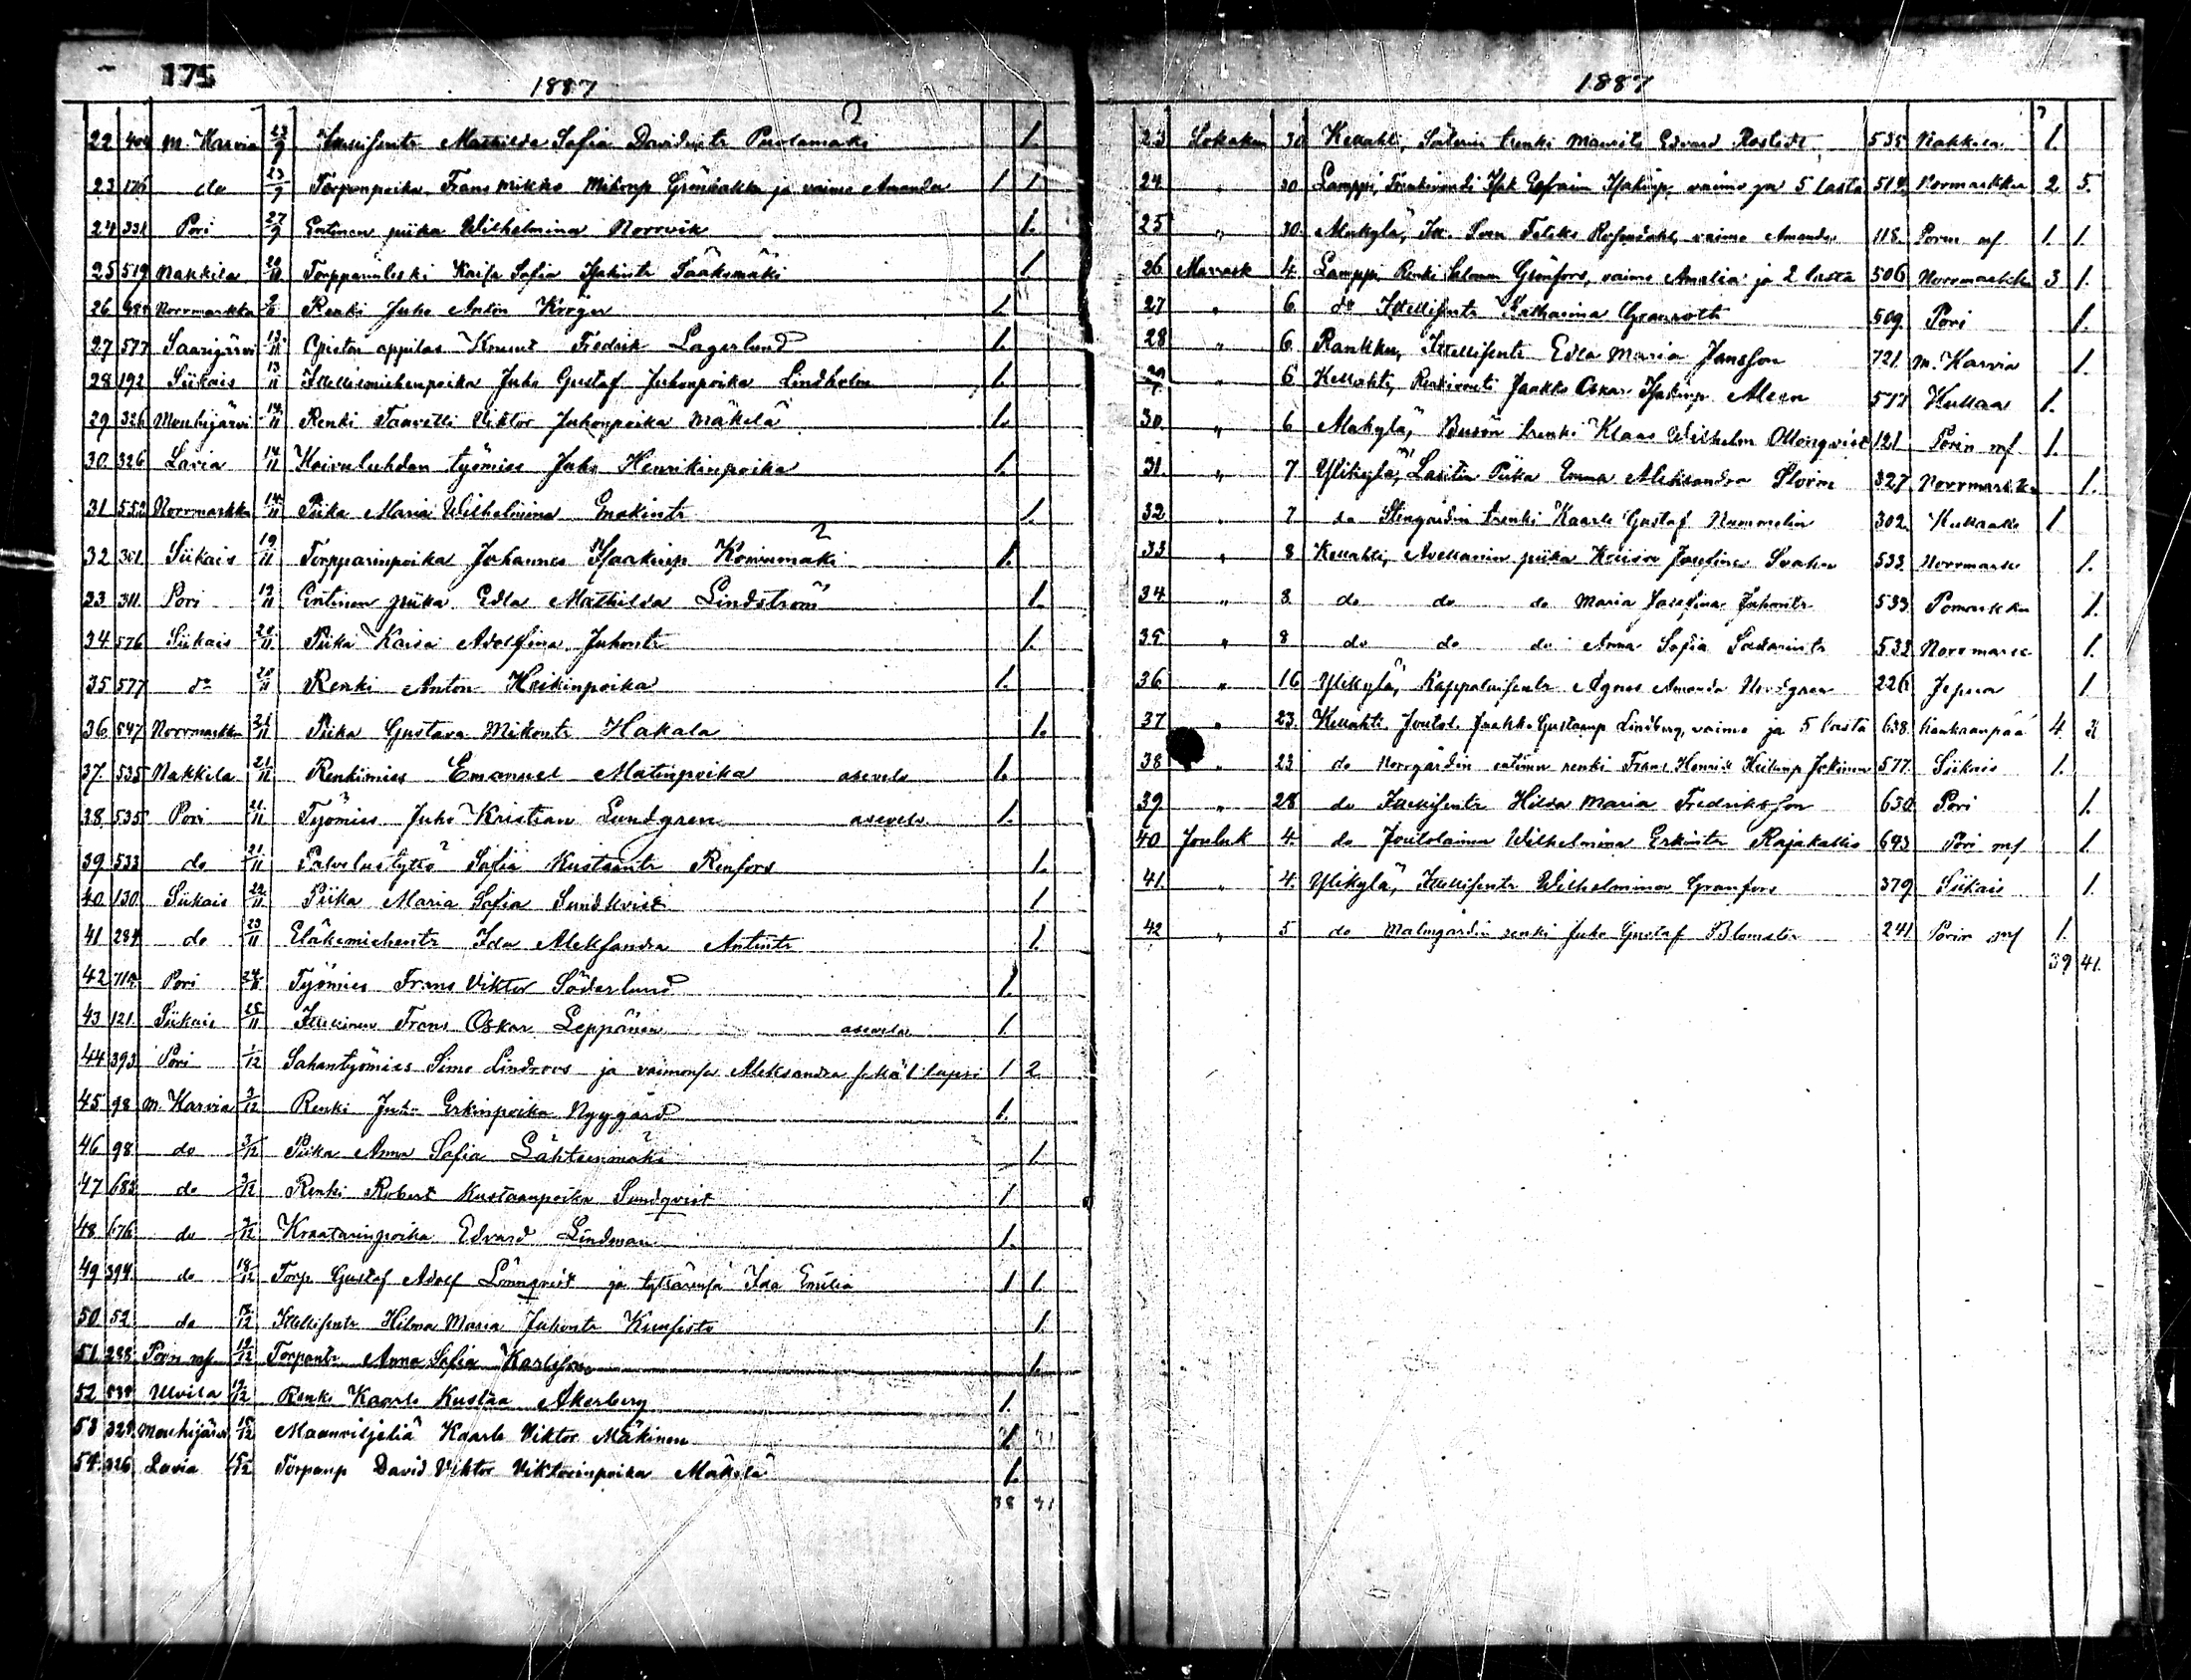 175
1887
22 404 M. Karvia 23/9 Itsellisentr Mathilda Sofia Davidintr Puolamäki 1.
23 176 do 23/9 Torpanpoika Frans Mikko Mikonp Grönbakka ja vaimo Amanda 1 1
24 331 Pori 27/9 Entinen piika Wilhelmina Norrvik 1.
25 519 Nakkila Torpparinleski Kaisa Sofia Isakintr Sääksmäki 1
26 Norrmarkku Renki Juho Anton Kröger 1.
27 577 Saarijärvi 13/11 Opiston oppilas Knuut Fredrik Lagerlund 1.
28 192 Siikais 13/11 Itsellismiehenpoika Juho Gustaf Juhonpoika Lindholm 1.
29 326 Mouhijärvi 14/11 Renki Taavetti Viktor Juhonpoika Mäkelä 1.
30 326 Lavia 14/11 Koivuluhdan työmies Juho Henrikinpoika 1.
31 552 Norrmarkku 14/11 Piika Maria Wilhelmina Eenokintr 1.
32 301 Siikais 19/11 Torpparinpoika Johannes Isaakinp Koninmäki 1.
33 311 Pori 19/11 Entinen piika Edla Mathilda Lindström 1.
34 576 Siikais 20/11 Piika Kaisa Adolfina Juhontr 1.
35 577 do 20/11 Renki Anton Heikinpoika 1.
36 547 Norrmarkku 21/11 Piika Gustava Mikontr Hakala 1.
37. 535 Nakkila 21/11 Renkimies Emanuel Matinpoika asevelv 1.
38 535 Pori 21/11 Työmies Juho Kristian Lundgren asevelv 1.
39 533 do 21/11 Palvelustyttö Sofia Kustaantr Renfors 1.
40 130 Siikais 22/11 Piika Maria Sofia Sundkvist 1
41 284 do 23/11 Eläkemiehentr Ida Aleksandra Antintr 1.
42 714 Pori Työmies Frans Viktor Söderlund 1.
43 121. Siikais 25/11 Itsellinen Frans Oskar Leppänen asevelv 1.
44 393 Pori 1/12 Sahantyömies Simo Lindroos ja vaimonsa Aleksandra sekä 1 lapsi 1 2.
45 98 M. Karvia 3/12 Renki Juho Erkinpoika Nygård 1.
46 98 do 3/12 Piika Anna Sofia Lähteenmäki 1.
47 683 do 3/12 Renki Robert Kustaanpoika Sundqvist 1.
48 676 do Kraatarinpoika Edvard Lindman 1.
49 394 do 18/12 Torp Gustaf Adolf Lönnqvist ja tyttärensä Ida Emilia 1 1.
50 52 do Itsellisentr Hilma Maria Juhontr Kiunisto 1.
51 288 Porin msk Torpantr Anna Sofia Karlsson 1.
52 Ulvila Renki Kaarle Kustaa Åkerberg 1.
53 328 Mouhijärvi 18/12 Maanviljeliä Kaarle Viktor Mäkinen 1.
54 326 Lavia Torpanp David Viktor Viktorinpoika Mäkelä 1.
38 31
1887
23 Lokakuu 30 Kellahti, Säterin trenki Maurits Edvard Rostedt 535 Nakkila 1.
24 „ 30 Lamppi, Isak Efraim Isakinp, vaimo ja 5 lasta 514 Normarkku 2. 5.
25 „ 30 Makylä, Its. Sven Feliks Rosendahl, vaimo Amanda 118. Porin msk 1. 1.
26 Marrask 4. Lamppi Renki Salomon Grönfors, vaimo Amalia ja 2 lasta 506 Norrmarkku 3 1.
27 „ 6 do Itsellisentr Katharina Granroth 509 Pori 1.
28 „ 6 Rankku, Itsellisentr Edla Maria Jansson 721. M. Karvia 1.
29 „ 6 Kellahti, Jaakko Oskar Isakinp Aleen 577 Kullaa 1.
30 „ 6 Makylä, Busön trenki Klaas Wilhelm Ollonqvist 121 Porin msk 1.
31. „ 7 Ylikylä, Piika Emma Aleksandra Storm 327 Norrmarkku 1.
32 „ 7 do Stengårdin trenki Kaarle Gustaf Nummelin 302. Kullaalt 1
33 „ 8 Kellahti, Avellanin piika Kaisa Josefina Svahn 533 Norrmark 1.
34 „ 8 do do do Maria Josefina Juhontr 533 Pomarkku 1.
35 „ 8 do do do Anna Sofia 533 Norrmark 1.
36 „ 16 Ylikylä, Agnes Amanda Nordgren 226 Jepua 1
37 „ 23. Kellahti Joutol. Jaakko Gustanp Lindberg, vaimo ja 5 lasta 638 Kankaanpää 4. 3
38 „ 23 do Norrgårdin entinen renki Frans Henrik Heikinp Jokinen 577. Siikais 1.
39 „ 28 do Itsellisentr Hilda Maria Fredriksson 630 Pori 1.
40 Jouluk 4. do Joutolainen Wilhelmina Erkintr Rajakallio 693 Pori msk 1.
41. „ 4. Ylikylä, Itsellisentr Wilhelmina Granfors 379 Siikais 1.
42 „ 5 do Malmgårdin renki Juho Gustaf Blomster 241 Porin msk 1.
39 41.